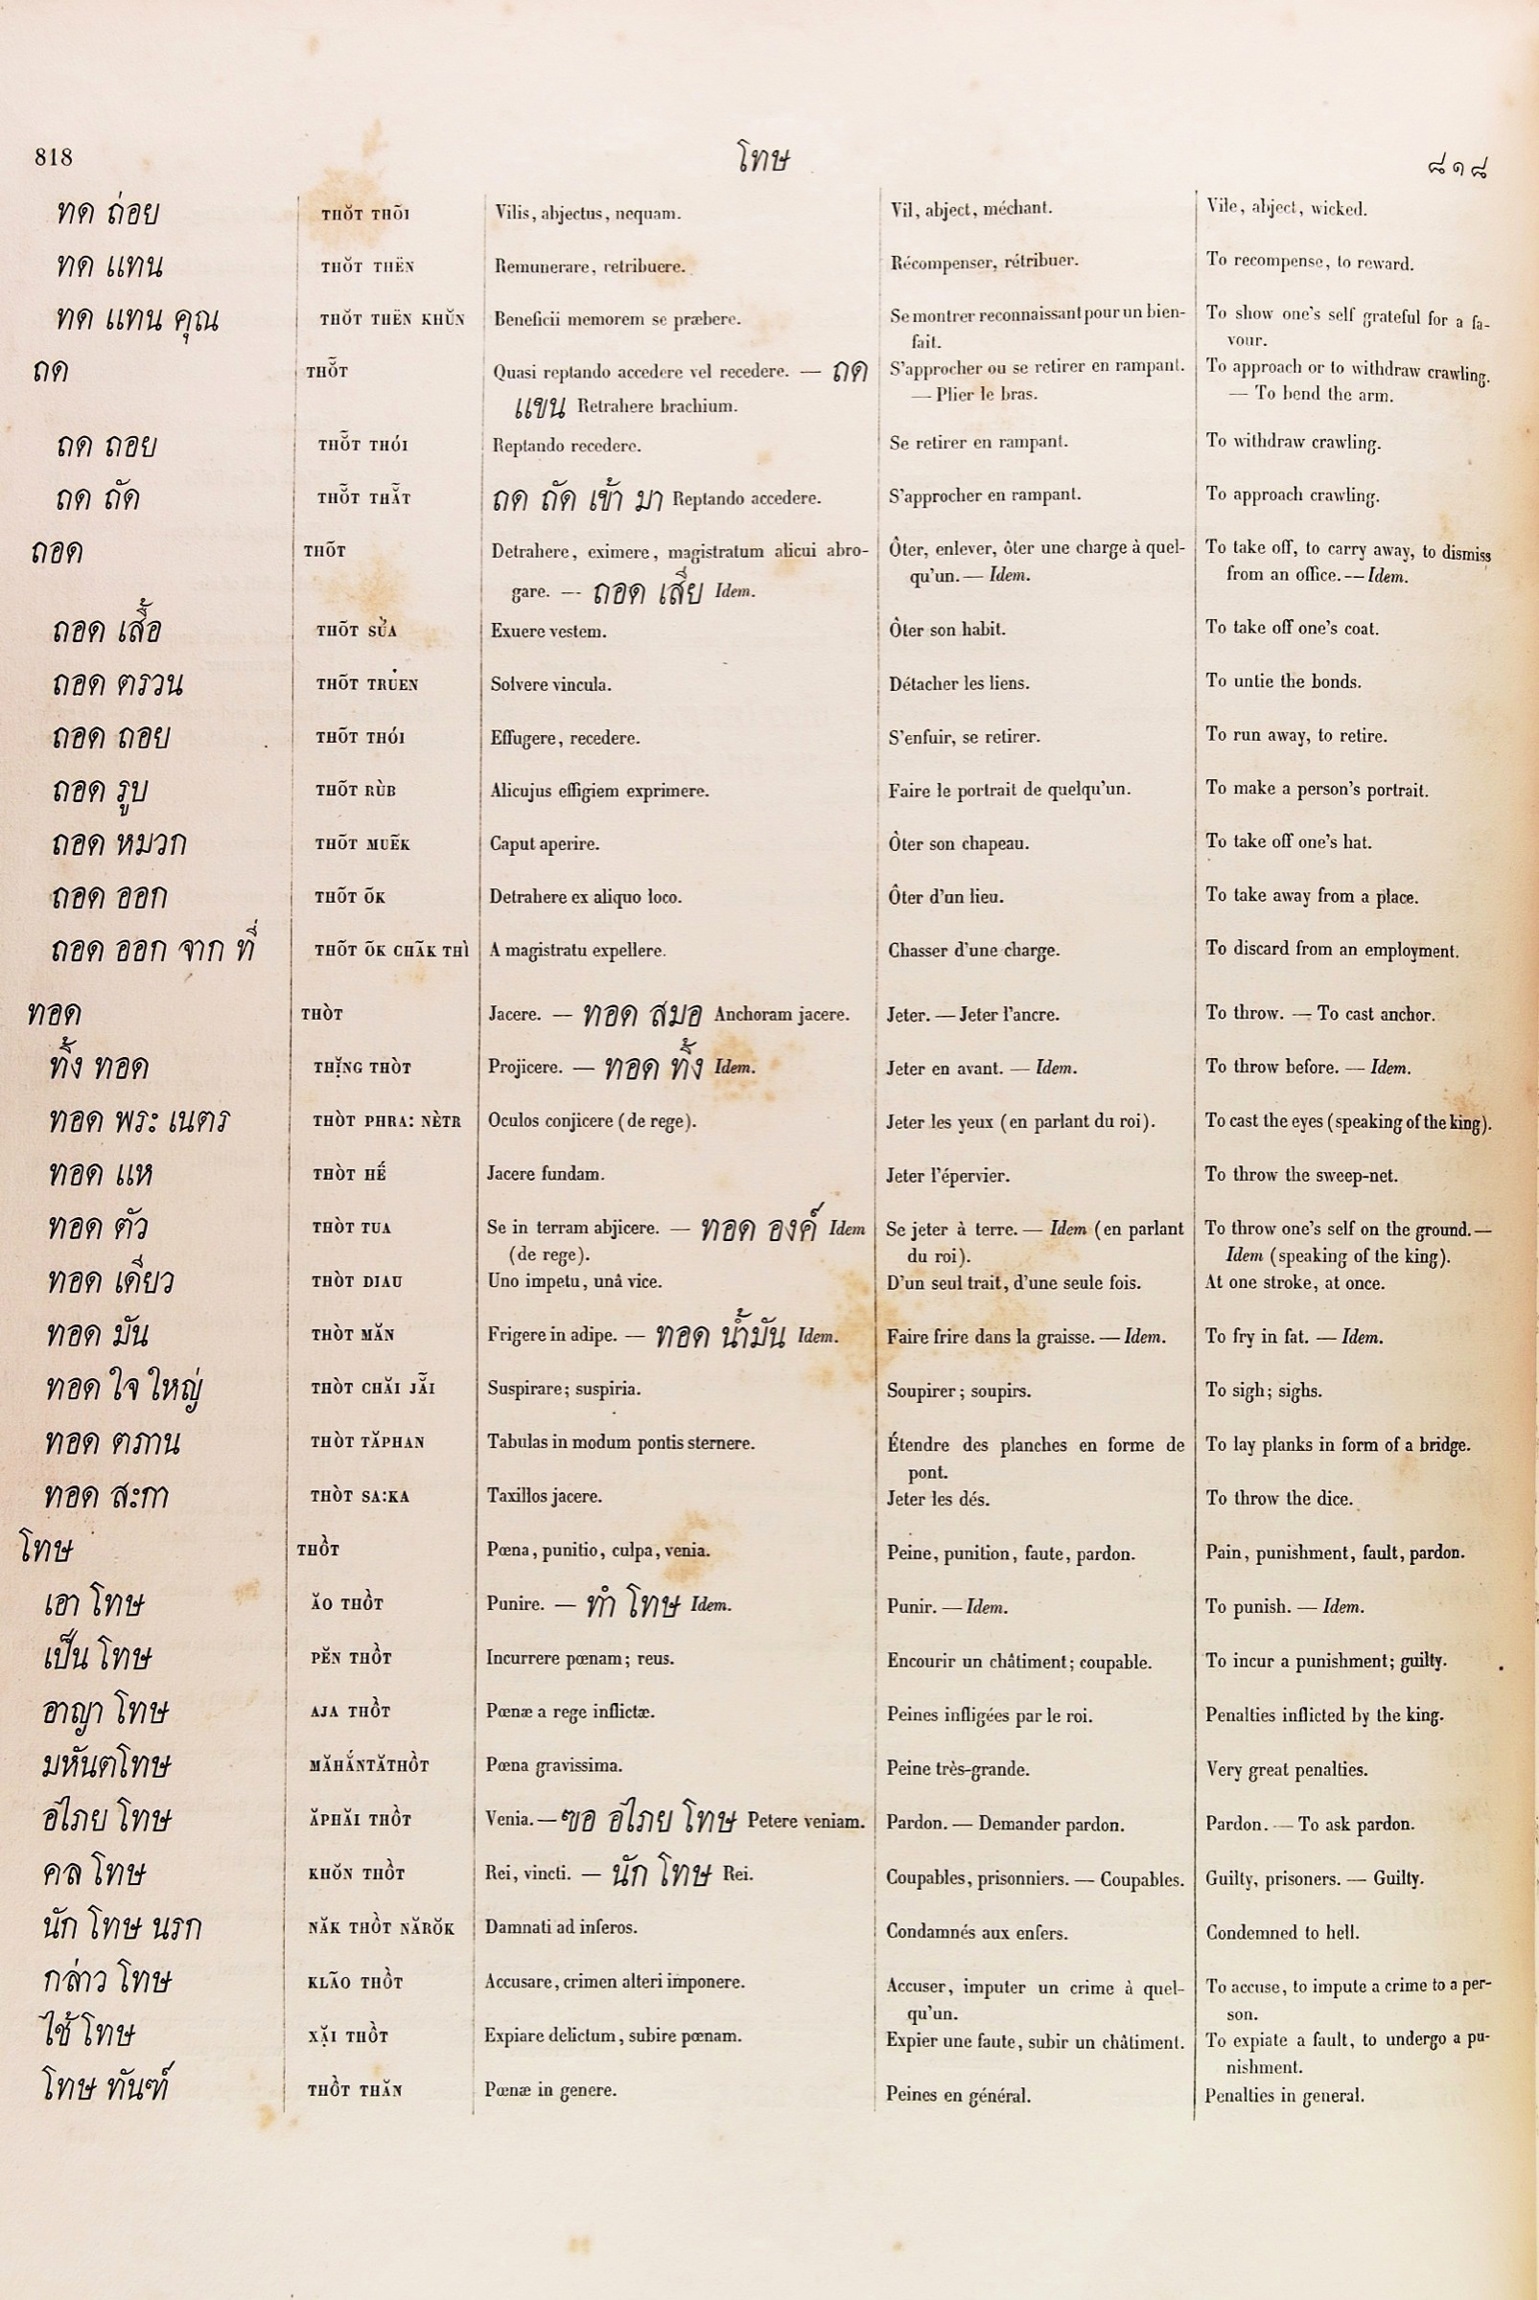 818 โทษ ๘๑๘
ทด ถ่อย THŎT THŌI Vilis, abjectus, nequam. Vil, abject, méchant. Vile, abject, wicked.
ทด แทน THŎT THËN Remunerare, retribuere. Récompenser, rétribuer. To recompense, to reward.
ทด แทน คุณ THŎT THËN KHŬN Beneficii memorem se præbere. Se montrer reconnaissant pour un bien- To show one's self grateful for a fa-
fait. vour.
ถด THŎ̃T Quasi reptando accedere vel recedere. — ถด S'approcher ou se retirer en rampant. To approach or to withdraw crawling.
แขน Retrahere brachium. — Plier le bras. — To bend the arm.
ถด ถอย THŎ̃T THÓI Reptando recedere. Se retirer en rampant. To withdraw crawling.
ถด ถัด THŎ̃T THẴT ถด ถัด เข้า มา Reptando accedere. S'approcher en rampant. To approach crawling.
ถอด THÕT Detrahere, eximere, magistratum alicui abro- Ôter, enlever, ôter une charge à quel- To take off, to carry away, to dismiss
gare. — ถอด เสีย Idem. qu'un. — Idem. from an office. — Idem.
ถอด เสื้อ THÕT SỬA Exuere vestem. Ôter son habit. To take off one's coat.
ถอด ตรวน THÕT TRU̇EN Solvere vincula. Détacher les liens. To untie the bonds.
ถอด ถอย THÕT THÓI Effugere, recedere. S'enfuir, se retirer. To run away, to retire.
ถอด รูบ THÕT RÙB Alicujus effigiem exprimere. Faire le portrait de quelqu'un. To make a person's portrait.
ถอด หมวก THÕT MUẼK Caput aperire. Ôter son chapeau. To take off one's hat.
ถอด ออก THÕT ÕK Detrahere ex aliquo loco. Ôter d'un lieu. To take away from a place.
ถอด ออก จาก ที่ THÕT ÕK CHÃK THÌ A magistratu expellere. Chasser d'une charge. To discard from an employment.
ทอด THÒT Jacere. — ทอด สมอ Anchoram jacere. Jeter. — Jeter l'ancre. To throw. — To cast anchor.
ทิ้ง ทอด THỊ̆NG THÒT Projicere. — ทอด ทิ้ง Idem. Jeter en avant. — Idem. To throw before. — Idem.
ทอด พระ เนตร THÒT PHRA: NÈTR Oculos conjicere (de rege). Jeter les yeux (en parlant du roi). To cast the eyes (speaking of the king).
ทอด แห THÒT HẾ Jacere fundam. Jeter l'épervier. To throw the sweep-net.
ทอด ตัว THÒT TUA Se in terram abjicere. — ทอด องค์ Idem Se jeter à terre. — Idem (en parlant To throw one's self on the ground. —
(de rege). du roi). Idem (speaking of the king).
ทอด เดียว THÒT DIAU Uno impetu, unâ vice. D'un seul trait, d'une seule fois. At one stroke, at once.
ทอด มัน THÒT MĂN Frigere in adipe. — ทอด น้ำมัน Idem. Faire frire dans la graisse. — Idem. To fry in fat. — Idem.
ทอด ใจ ใหญ่ THÒT CHĂI JẴI Suspirare; suspiria. Soupirer; soupirs. To sigh; sighs.
ทอด ตภาน THÒT TĂPHAN Tabulas in modum pontis sternere. Étendre des planches en forme de To lay planks in form of a bridge.
pont.
ทอด สะกา THÒT SA:KA Taxillos jacere. Jeter les dés. To throw the dice.
โทษ THỒT Pœna, punitio, culpa, venia. Peine, punition, faute, pardon. Pain, punishment, fault, pardon.
เอา โทษ ĂO THỒT Punire. — ทำ โทษ Idem. Punir. — Idem. To punish. — Idem.
เป็น โทษ PĔN THỒT Incurrere pœnam; reus. Encourir un châtiment; coupable. To incur a punishment; guilty.
อาญา โทษ AJA THỒT Pœnæ a rege inflictæ. Peines infligées par le roi. Penalties inflicted by the king.
มหันตโทษ MĂHẮNTĂTHỒT Pœna gravissima. Peine très-grande. Very great penalties.
อไภย โทษ ĂPHĂI THỒT Venia. — ฃอ อไภย โทษ Petere veniam. Pardon. — Demander pardon. Pardon. — To ask pardon.
คล โทษ KHŎN THỒT Rei, vincti. — นัก โทษ Rei. Coupables, prisonniers. — Coupables. Guilty, prisoners. — Guilty.
นัก โทษ นรก NĂK THỒT NĂRŎK Damnati ad inferos. Condamnés aux enfers. Condemned to hell.
กล่าว โทษ KLÃO THỒT Accusare, crimen alteri imponere. Accuser, imputer un crime à quel- To accuse, to impute a crime to a per-
qu'un. son.
ใช้ โทษ XẶI THỒT Expiare delictum, subire pœnam. Expier une faute, subir un châtiment. To expiate a fault, to undergo a pu-
nishment.
โทษ ทันฑ์ THỒT THĂN Pœnæ in genere. Peines en général. Penalties in general.